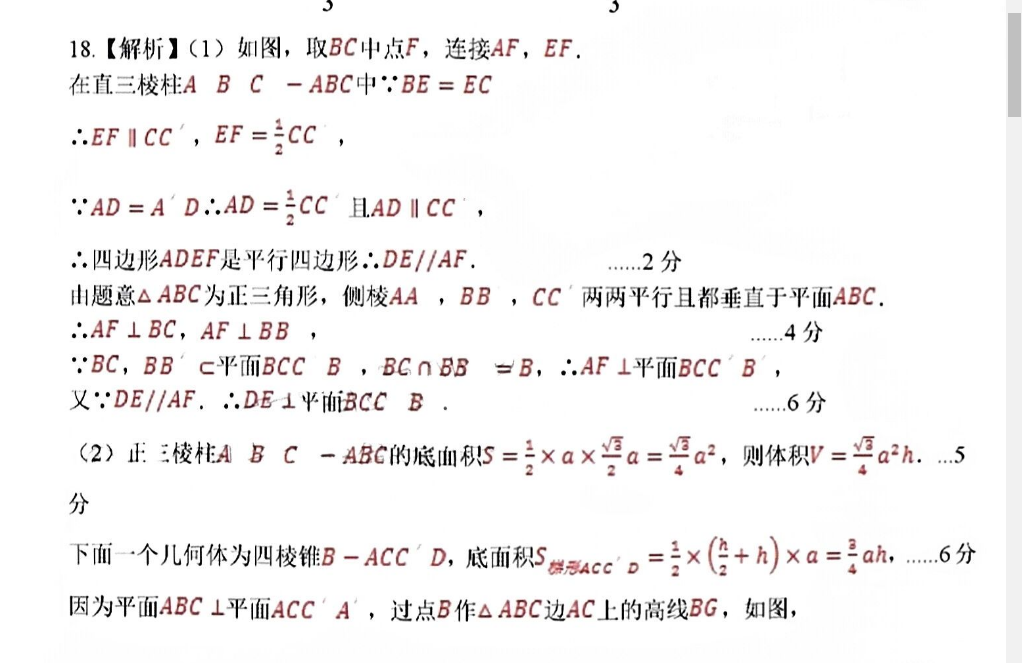 3 3
18.【解析】（1）如图，取BC中点F，连接AF，EF．
在直三棱柱A B C －ABC中∵BE＝EC
∴EF∥CC′，EF＝1/2CC ，
∵AD＝A′D∴AD＝1/2CC′且AD∥CC′，
∴四边形ADEF是平行四边形∴DE//AF． ……2分
由题意△ABC为正三角形，侧棱AA ，BB ，CC′两两平行且都垂直于平面ABC．
∴AF⊥BC，AF⊥BB ， ……4分
∵BC，BB′⊂平面BCC B ，BC∩BB ＝B，∴AF⊥平面BCC′B′，
又∵DE//AF．∴DE⊥平面BCC B ． ……6分
（2）正三棱柱A B C －ABC的底面积S＝1/2×a×√3/2a＝√3/4a²，则体积V＝√3/4a²h．…5
分
下面一个几何体为四棱锥B－ACC′D，底面积S梯形ACC′D＝1/2×(h/2＋h)×a＝3/4ah，……6分
因为平面ABC⊥平面ACC′A′，过点B作△ABC边AC上的高线BG，如图，